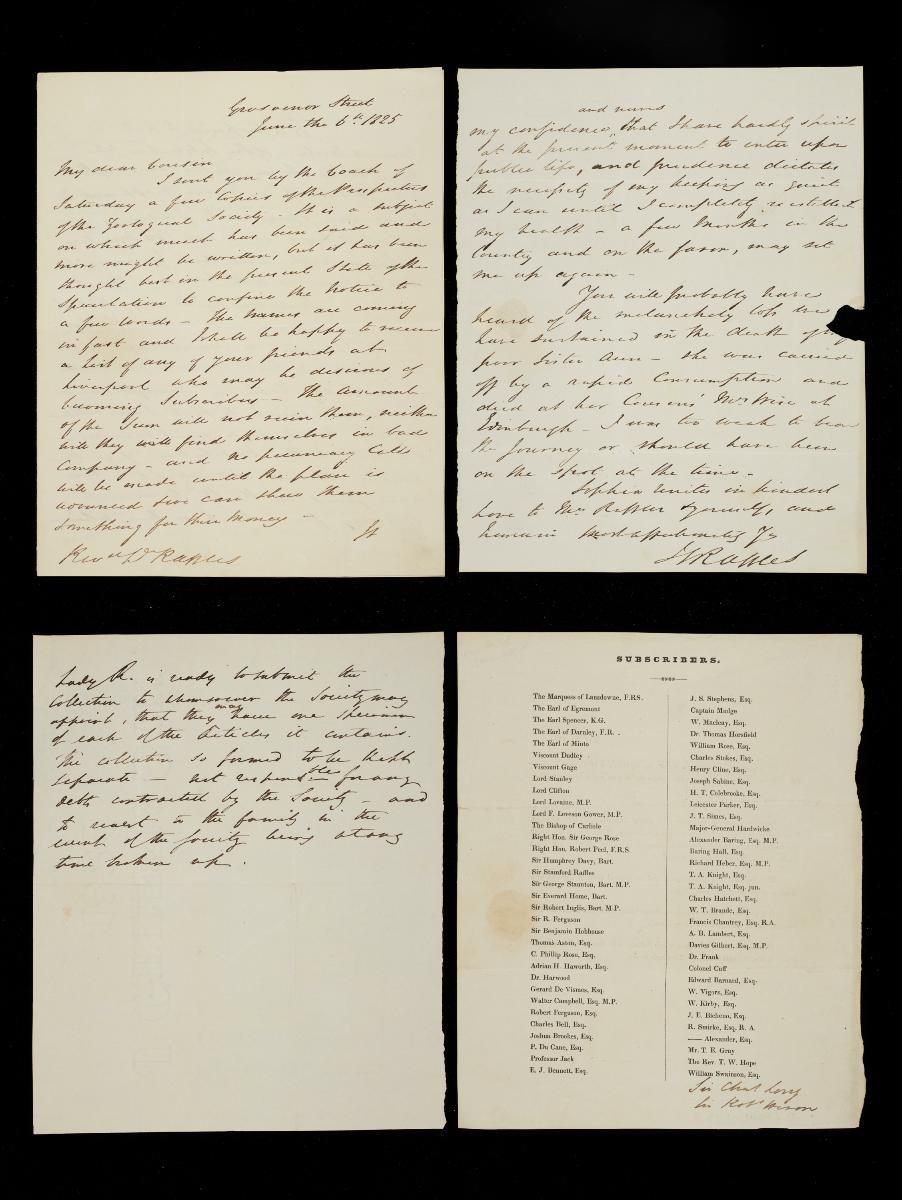 Grosvenor Street
June the 6th. 1825
My dear Cousin
I sent you by the Coach of
Saturday a few Copies of the Prospectus
of the Zoological Society. It is a subject
on which much has been said and
more might be written, but it has been
thought best in the present State of the
Speculation to confine the Notice to
a few words - The names are coming
in fast and I shall be happy to receive
a List of any of your friends at
Liverpool who may be desirous of
becoming Subscribers - The amount
of the Sum will not ruin them, neither
will they find themselves in bad
Company - and no pecuniary Call
will be made until the plan is
advanced & we can shew them
Something for their Money -
It
Revd. Dr Raffles
and nerves
my confidence, that I have hardly spirit
at the present moment to enter upon
public life, and prudence dictates
the necessity of my keeping as quiet
as I can until I completely reestablish
my health - a few Months in the
Country and on the farm, may set
me up again -
You will probably have
heard of the melancholy loss we
have sustained in the death of my
poor Sister Ann - She was carried
off by a rapid Consumption and
died at her Cousins' Mrs Wise at
Edinburgh - I was too weak to bear
the journey or should have been
on the spot at the time -
Sophia unites in kindest
love to Mrs Raffles & yourself, and
I remain most affectionately Yrs
T S Raffles
Lady R. is ready to submit the
Collection to whomsoever the Society may
appoint, that they may have one Specimen
of each of the Articles it contains.
The collection so formed to be kept
separate - not responsible for any
debts contracted by the Society - and
to revert to the family in the
event of the Society being at any
time broken up.
SUBSCRIBERS.
The Marquess of Lansdowne, F.R.S.
The Earl of Egremont
The Earl Spencer, K.G.
The Earl of Darnley, F.R. .
The Earl of Minto
Viscount Dudley
Viscount Gage
Lord Stanley
Lord Clifton
Lord Lovaine, M.P.
Lord F. Leveson Gower, M.P.
The Bishop of Carlisle
Right Hon. Sir George Rose
Right Hon. Robert Peel, F.R.S.
Sir Humphrey Davy, Bart.
Sir Stamford Raffles
Sir George Staunton, Bart. M.P.
Sir Everard Home, Bart.
Sir Robert Inglis, Bart. M.P.
Sir R. Ferguson
Sir Benjamin Hobhouse
Thomas Aston, Esq.
C. Phillip Rose, Esq.
Adrian H. Haworth, Esq.
Dr. Harwood
Gerard De Vismes, Esq.
Walter Campbell, Esq. M.P.
Robert Ferguson, Esq.
Charles Bell, Esq.
Joshua Brookes, Esq.
P. Du Cane, Esq.
Professor Jack
E. J. Bennett, Esq.
J. S. Stephens, Esq.
Captain Mudge
W. Macleay, Esq.
Dr. Thomas Horsfield
William Rose, Esq.
Charles Stokes, Esq.
Henry Cline, Esq.
Joseph Sabine, Esq.
H. T. Colebrooke, Esq.
Leicester Parker, Esq.
J. T. Simes, Esq.
Major-General Hardwicke
Alexander Baring, Esq. M.P.
Baring Hall, Esq.
Richard Heber, Esq. M.P.
T. A. Knight, Esq.
T. A. Knight, Esq. jun.
Charles Hatchett, Esq.
W. T. Brande, Esq.
Francis Chantrey, Esq. R.A.
A. B. Lambert, Esq.
Davies Gilbert, Esq. M.P.
Dr. Frank
Colonel Cuff
Edward Barnard, Esq.
W. Vigors, Esq.
W. Kirby, Esq.
J. E. Bicheno, Esq.
R. Smirke, Esq. R. A.
—— Alexander, Esq.
Mr. T. E. Gray
The Rev. T. W. Hope
William Swainson, Esq.
Sir Chas Long
Sir Robt Wilson